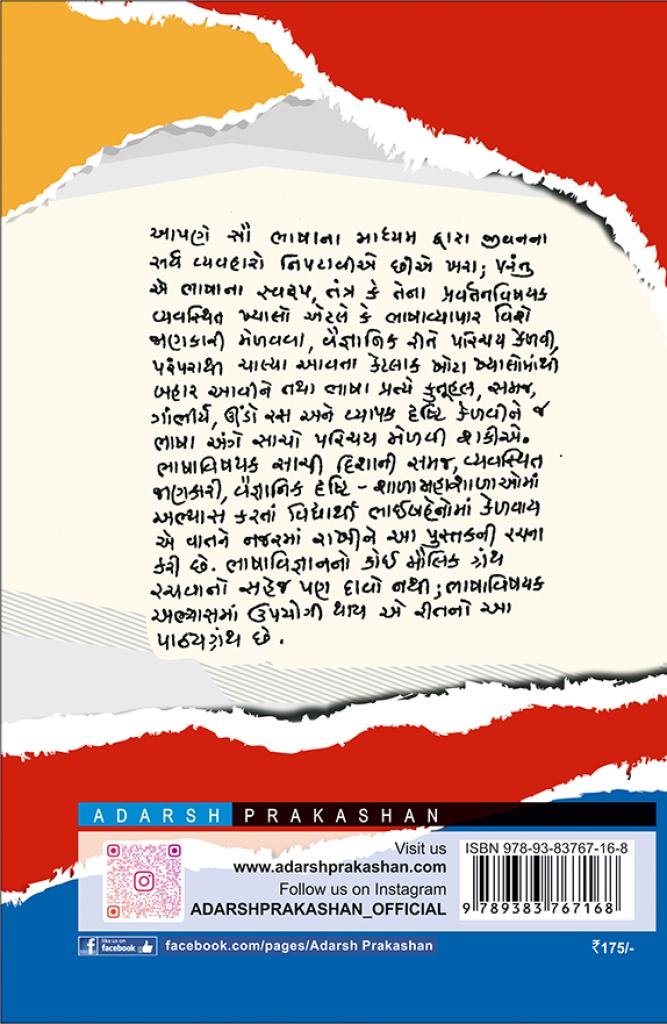 આપણે સૌ ભાષાના માધ્યમ દ્વારા જીવનના
સર્વ વ્યવહારો નિપટાવીએ છીએ ખરા; પરંતુ
એ ભાષાના સ્વરૂપ, તંત્ર કે તેના પ્રવર્તનવિષયક
વ્યવસ્થિત ખ્યાલો એટલે કે ભાષાવ્યાપાર વિશે
જાણકારી મેળવવા, વૈજ્ઞાનિક રીતે પરિચય કેળવી,
પરંપરાથી ચાલ્યા આવતા કેટલાક ખોટા ખ્યાલોમાંથી
બહાર આવીને તથા ભાષા પ્રત્યે કુતૂહલ, સમજ,
ગાંભીર્ય, ઊંડો રસ અને વ્યાપક દૃષ્ટિ કેળવીને જ
ભાષા અંગે સાચો પરિચય મેળવી શકીએ.
ભાષાવિષયક સાચી દિશાની સમજ, વ્યવસ્થિત
જાણકારી, વૈજ્ઞાનિક દૃષ્ટિ - શાળામહાશાળાઓમાં
અભ્યાસ કરતાં વિદ્યાર્થી ભાઈબહેનોમાં કેળવાય
એ વાતને નજરમાં રાખીને આ પુસ્તકની રચના
કરી છે. ભાષાવિજ્ઞાનનો કોઈ મૌલિક ગ્રંથ
રચવાનો સહેજ પણ દાવો નથી; ભાષાવિષયક
અભ્યાસમાં ઉપયોગી થાય એ રીતનો આ
પાઠ્યગ્રંથ છે.
ADARSH PRAKASHAN
Visit us
www.adarshprakashan.com
Follow us on Instagram
ADARSHPRAKASHAN_OFFICIAL
ISBN 978-93-83767-16-8
9 789383 767168
like us on
facebook
facebook.com/pages/Adarsh Prakashan
₹175/-